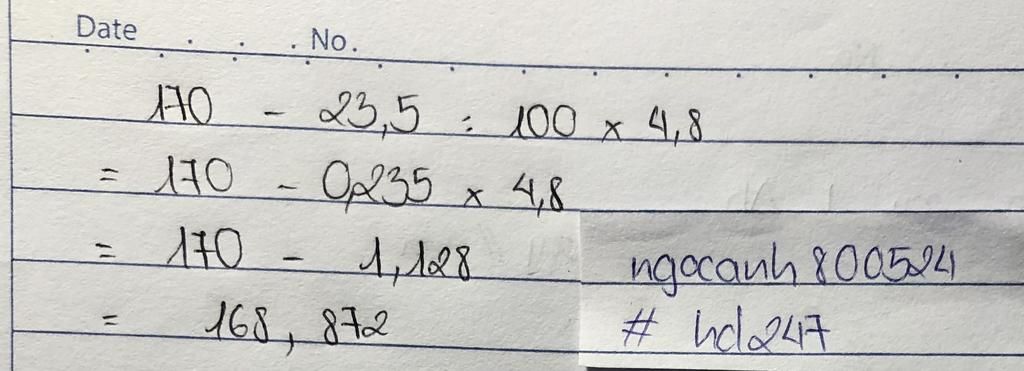 Date . . . . No.
170 - 23,5 : 100 x 4,8
= 170 - 0,235 x 4,8
= 170 - 1,128
= 168, 872
ngocanh 800524
# hd247